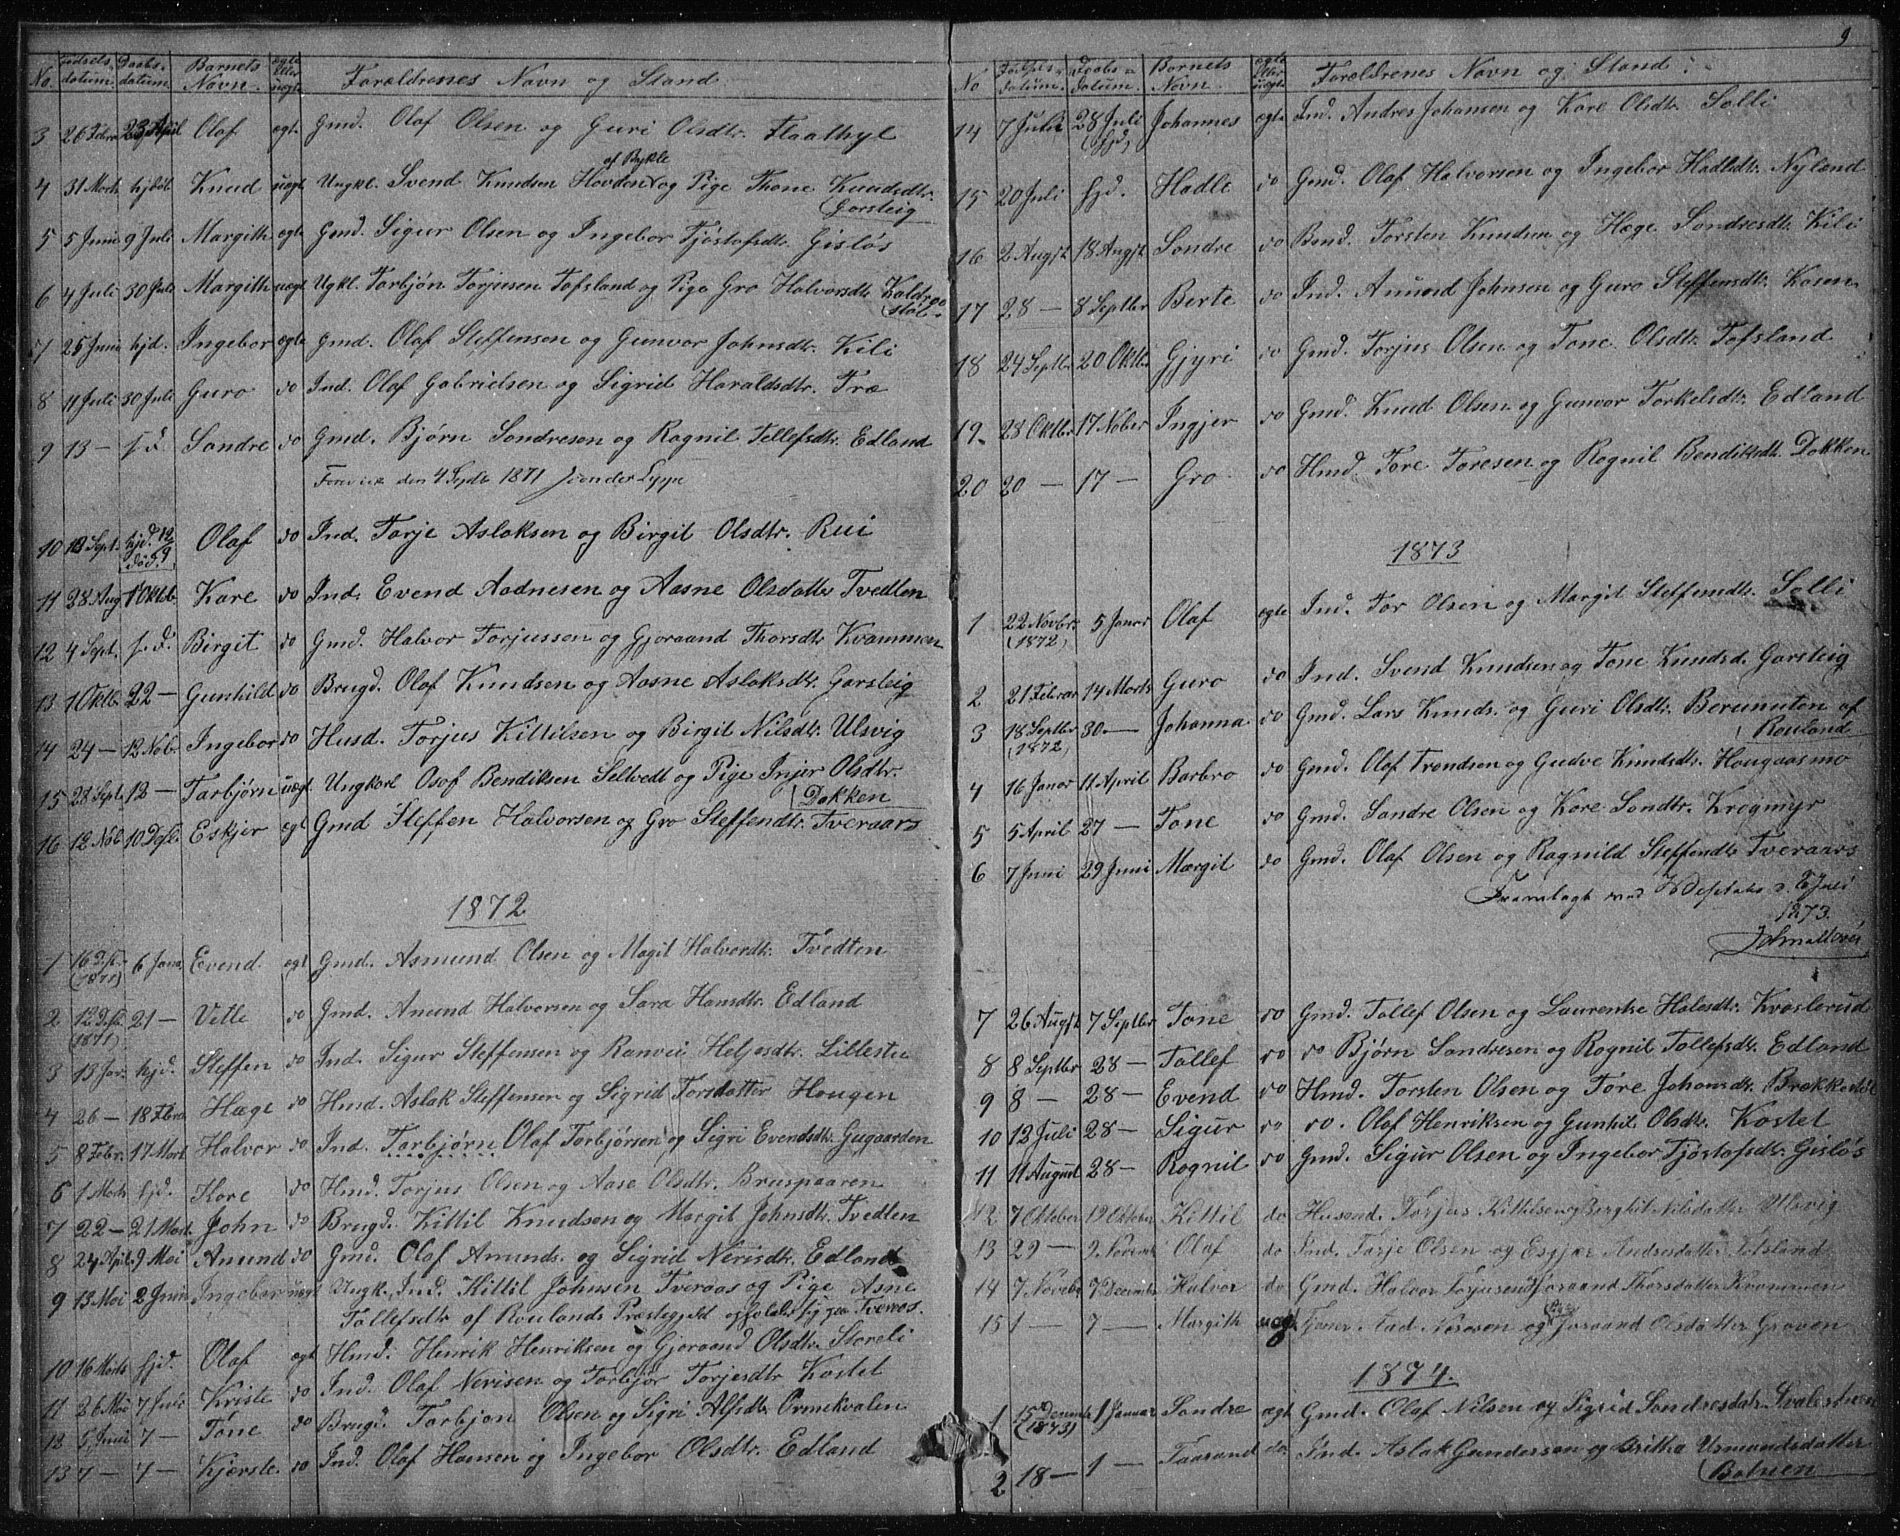 No. Fødsels datum. Daabs datum Barnets Navn. ægte eller uægte Forældrenes Navn og Stand.
3 26 Febru 23 April Olaf ægt. Gmd. Olaf Olsen og Guri Olsdtr. Flaathyl
4 31 Marts hjdøb. Knud uægt Ungkl. Svend Knudsen Hovden af Bykle og Pige Thone Knudsdtr.
Garsteig
5 5 Juni 9 Juli Margith ægte Gmd. Sigur Olsen og Ingebor Tjöstofsdtr. Gisløs
6 4 Juli 30 Juli Margith uægt Ugkl. Torbjøn Torjusen Tofsland og Pige Gro Halvorsdtr.
7 25 Juni hjd. Ingebor ægte Gmd. Olaf Steffensen og Gunvor Johnsdtr. Kili
8 11 Juli 30 Juli Guro do Ind. Olaf Gabrielsen og Sigrid Haraldsdtr. Træ
9 13 — Sondre do Gmd. Bjørn Sondresen og Rognil Tellefsdtr. Edland
den 4 Septbr 1871
10 12 Sept. hjd. 12/9 død. Olaf do Ind. Torje Aslaksen og Birgit Olsdtr. Rui
11 28 Aug 1 Oktob. Kare do Ind. Evend Aadnesen og Aasne Olsdatter Tvedten
12 4 Sept. Birgit do Gmd. Halvor Torjussen og Gjoraand Thorsdtr. Kvammen
13 1 Oktb. 22 — Gunhild do Brugd. Olaf Knudsen og Aasne Aslaksdtr. Garsteig
14 24 — 12 Nob. Ingebor do Husd. Torjus Kittilsen og Birgit Nilsdtr. Ulsvig
15 28 Sept. 12 — Torbjørn uægt Ungkarl Osof Bendiksen Seltvedt og Pige Injer Olsdtr.
Dokken
16 12 Nob. 10 Desb. Eskjer ægt Gmd Steffen Halvorsen og Gro Steffendtr. Tveraas
1872
1 16 Desb. (1871) 6 Janr. Evend ægt Gmd. Asmund Olsen og Magit Halverdtr. Tvedten
2 12 Desb. (1871) 21 — Vetle do Gmd. Anund Halvorsen og Sara Hansdtr. Edland
3 13 Jan. hjd. Steffen do Ind. Sigur Steffensen og Ranvei Heljesdtr. Lillestu
4 26 — 18 Febru. Hæge do Hmd. Aslak Steffensen og Sigrid Torsdatter Haugen
5 8 Febr. 17 Mart Halvor do Ind. Torbjørn Olaf Torbjørsen og Sigri Evendsdtr. Gugaarden
6 1 Marts hjd. Tore do Hmd. Torjus Olsen og Aase Olsdtr. Bruspaaren
7 22 — 21 Mart. John do Brugd. Kittil Knudsen og Margit Johnsdtr. Tvedten
8 24 April. 9 Mai Anund do Gmd. Olaf Amunds. og Sigrid Nerisdtr. Edland
9 13 Mai 2 Juni Ingebor uægt Ungk. Ind. Kittil Johnsen Tveraas og Pige Asne
Tollefsdtr. af Roulands Præstegjeld opholder sig paa Tveraas.
10 16 Marts hjd. Olaf ægt Hmd. Henrik Henriksen og Gjoraand Olsdtr. Storeli
11 26 Mai 7 Juli Kriste do Ind. Olaf Nerisen og Torbjør Torjesdtr Kostet
12 5 Juni 7 — Tone do Brugd. Torbjøn Olsen og Sigri Alfsdtr. Ormekvalen
13 7 — 7 — Kjerste do Ind. Olaf Hansen og Ingebor Olsdtr. Edland
9
No Fødsels datum. Daabs datum. Barnets Navn. ægte eller uægte Forældrenes Navn og Stand.
14 7 Juli 28 Juli (hjd) Johannes ægte Ind. Andres Johansen og Kare Olsdtr. Solli
15 20 Juli hjd. Hadle do Gmd. Olaf Halvorsen og Ingebor Hadlsdtr. Nyland
16 2 Augst 18 Augst Sondre do Bmd. Torsten Knudsen og Hæge Sondresdtr. Kili
17 28 — 8 Septbr Berte do Ind. Amund Johnsen og Guro Steffensdtr. Kosen
18 24 Septbr 20 Oktbr Gjyri do Gmd. Torjus Olsen og Tone Olsdtr. Tofsland
19. 28 Oktbr 17 Nober Ingjer do Gmd. Knud Olsen og Gunvor Torkelsdtr. Edland
20 20 — 17 — Gro do Hmd. Tore Toresen og Rognil Bendiksdt. Dokken
1873
1 22 Novbr. (1872) 5 Janar Olaf ægte Ind. Tor Olsen og Margit Steffensdtr. Solli
2 21 Februar 14 Marts Guro do Ind. Svend Knudsen og Tone Knudsd. Garsteig
3 18 Septbr (1872) 30 — Johanna do Gmd. Lars Knuds. og Guri Olsdtr. Berunuten af
Rouland
4 16 Janar 11 April Barbro do Gmd. Olaf Trondsen og Gudve Knudsdtr. Haugaasmo
5 5 April 27 — Tone do Gmd. Sondre Olsen og Kore Sondtr. Kregmyr
6 7 Juni 29 Juni Margit do Gmd. Olaf Olsen og Ragnild Steffendtr Tveraas
Fremlagt ved
1873.
7 26 Augst 7 Septbr Tone do Gmd. Tollef Olsen og Laurentse Halesdtr. Kvaslerud
8 8 Septbr 28 — Tollef do do Bjørn Sondresen og Rognil Tollefsdtr. Edland
9 8 — 28 — Evend do Hmd. Torsten Olsen og Tore Johansdtr. Brokkestøl
10 12 Juli 28 — Sigur do do. Olaf Henriksen og Gunhil Olsdtr. Kostet
11 11 August 28 — Rognil do Gmd. Sigur Olsen og Ingebor Tjöstofsdtr. Gisløs
12 7 Oktober 19 Oktober Kittil do Husmd. Torjus Kittilsen og Berghit Nilsdatter Ulsvig
13 29 — 9 Novemb Olaf do Ind. Tarje Olsen og Esgjær Andresdatter Tofsland
14 7 Novebr 7 December Halvor do Gmd. Halvor Torjusen og Gjoraand Thorsdatter Kvammen
15 1 — 7 — Margith uægt Tjener Aad Neresen og Pige Joraand Olsdatter Groven
1874.
1 15 Decemb (1873) 1 Januar Sondre ægt Gmd. Olaf Nilsen og Sigrid Sondresdatr. Svalestuen
2 18 — 1 — Taarand do. Ind. Aslak Gundersen og Britha Asmundsdatter
Botnen